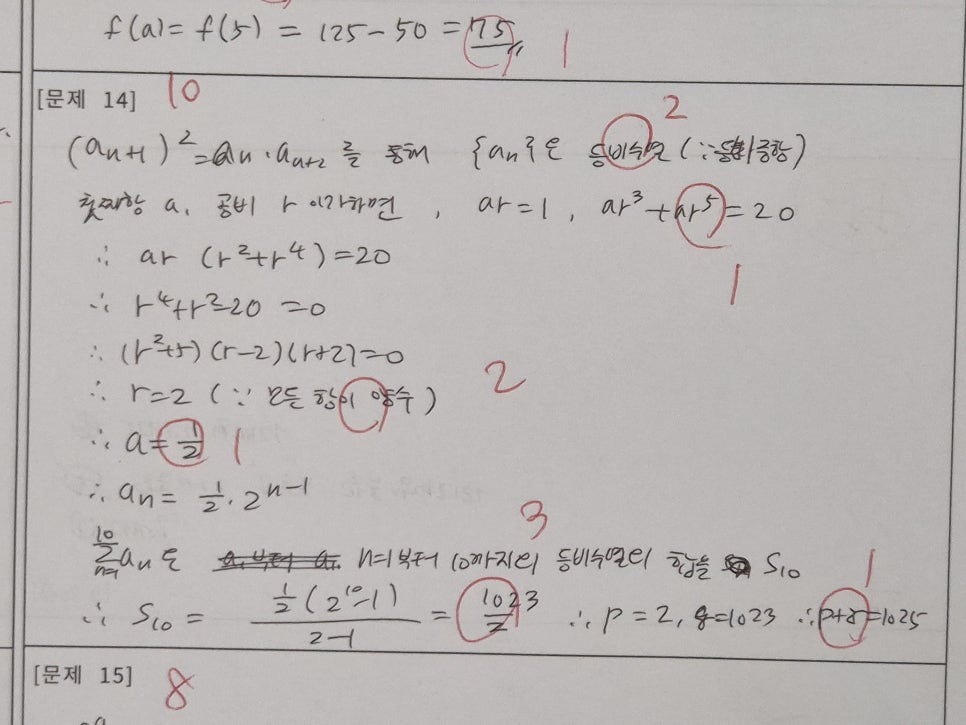 f(a) = f(5) = 125 - 50 = 75 1
[문제 14] 10
(an+1)² = an · an+2 를 통해 {an}은 등비수열 (∵ 등비중항) 2
첫째항 a, 공비 r 이라하면, ar = 1, ar³ + ar⁵ = 20
∴ ar (r² + r⁴) = 20 1
∴ r⁴ + r² - 20 = 0
∴ (r² + 5)(r - 2)(r + 2) = 0
∴ r = 2 (∵ 모든 항이 양수) 2
∴ a = 1/2 1
∴ an = 1/2 · 2ⁿ⁻¹
3
Σ(n=1→10) an 은 n=1부터 10까지의 등비수열의 합을 S10 1
∴ S10 = 1/2 (2¹⁰ - 1) / (2 - 1) = 1023/2 ∴ p = 2, q = 1023 ∴ p + q = 1025
[문제 15] 8